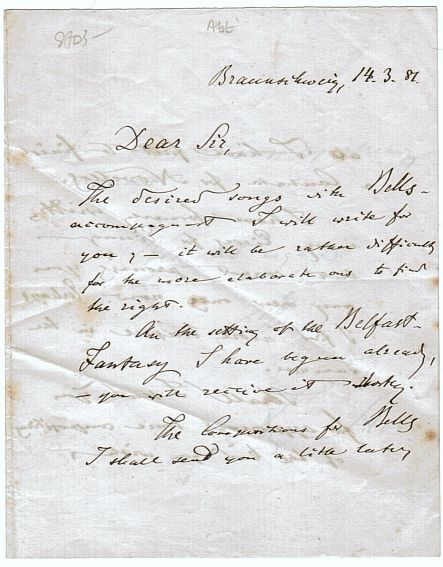 8705
Abt
Braunschweig, 14.3.81.
Dear Sir,
The desired songs with Bells-
accompagnement I will write for
you, – it will be rather difficulty
for the more elaborate ons to find
the right.
On the setting of the Belfast-
Fantasy I have begun already,
– you will receive it shortly.
The Compositions for Bells
I shall send you a little later,